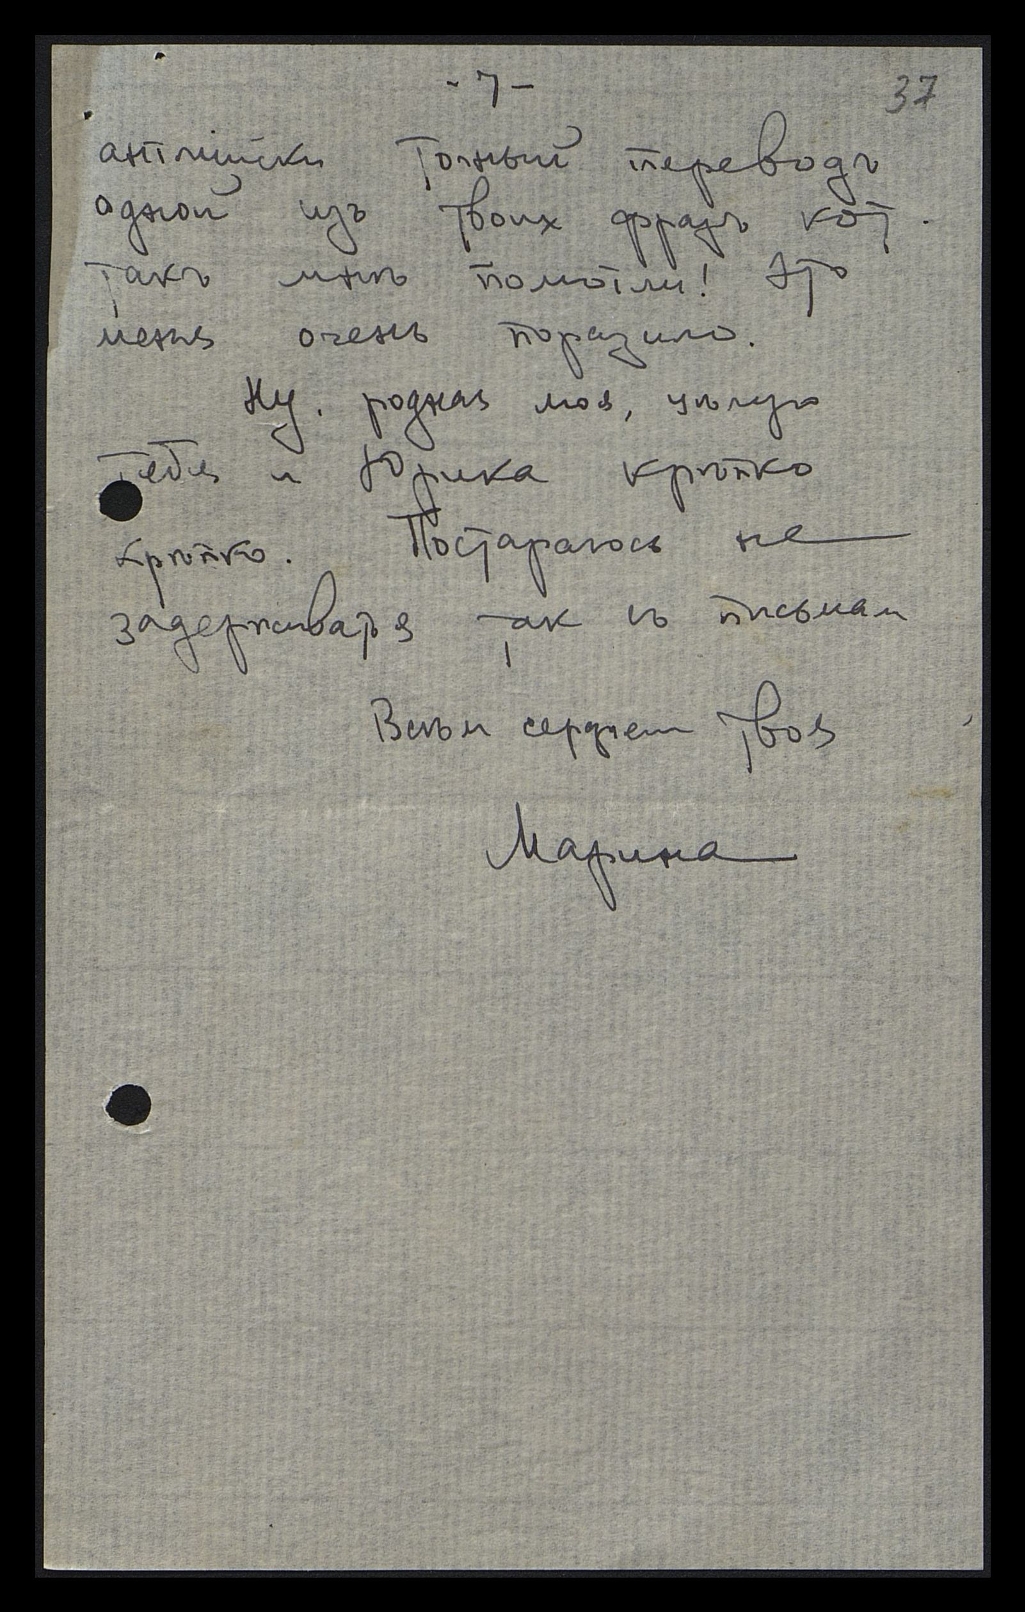 -7-
37
английски точный переводъ
одной изъ твоихъ фразъ кот.
такъ мнѣ помогли! Это
меня очень поразило.
Ну, родная моя, цѣлую
тебя и Юрика крѣпко
крѣпко. Постараюсь не
задерживатся так съ письмам
Всѣм сердцем твоя
Марина